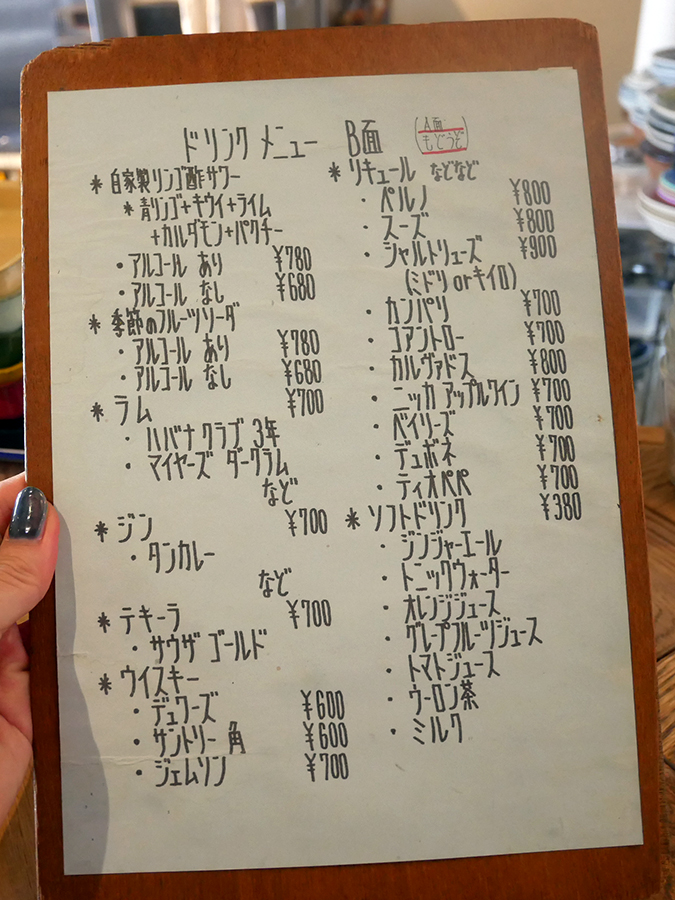 ドリンク メニュー B面
(A面もどうぞ)
* 自家製リンゴ酢サワー
* 青リンゴ+キウイ+ライム
+カルダモン+パクチー
・アルコール あり ¥780
・アルコール なし ¥680
* 季節のフルーツソーダ
・アルコール あり ¥780
・アルコール なし ¥680
* ラム ¥700
・ハバナクラブ 3年
・マイヤーズ ダークラム
など
* ジン ¥700
・タンカレー
など
* テキーラ ¥700
・サウザ ゴールド
* ウイスキー
・デュワーズ ¥600
・サントリー 角 ¥600
・ジェムソン ¥700
* リキュール などなど
・ペルノ ¥800
・スーズ ¥800
・シャルトリューズ ¥900
(ミドリ or キイロ)
・カンパリ ¥700
・コアントロー ¥700
・カルヴァドス ¥800
・ニッカ アップルワイン ¥700
・ベイリーズ ¥700
・デュボネ ¥700
・ティオペペ ¥700
* ソフトドリンク ¥380
・ジンジャーエール
・トニックウォーター
・オレンジジュース
・グレープフルーツジュース
・トマトジュース
・ウーロン茶
・ミルク